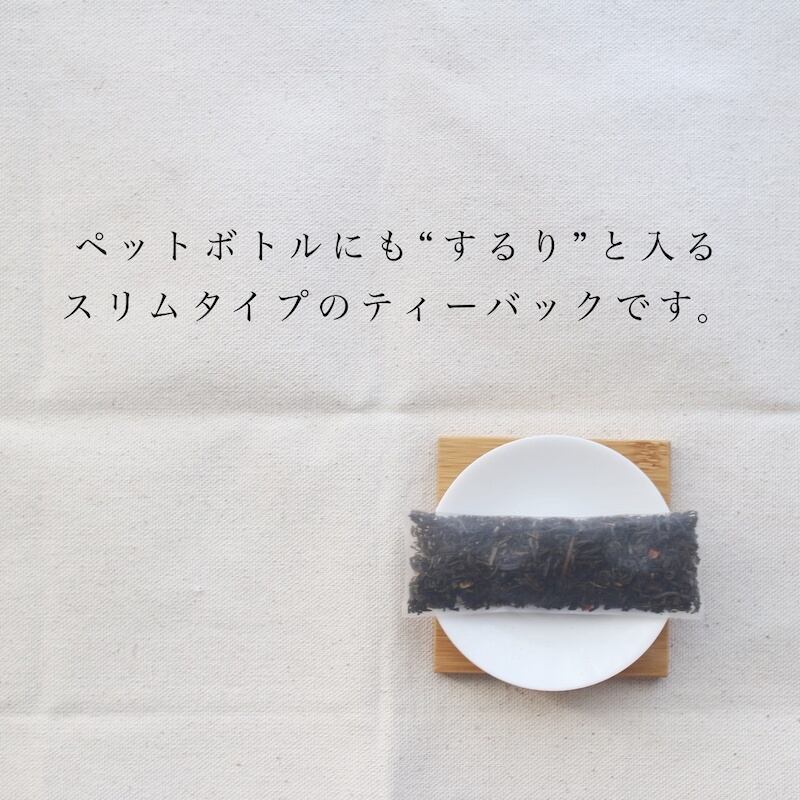 ペットボトルにも“するり”と入る
スリムタイプのティーバックです。